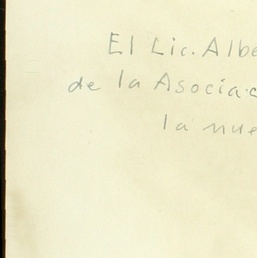 El Lic. Albe
de la Asociac
la nue